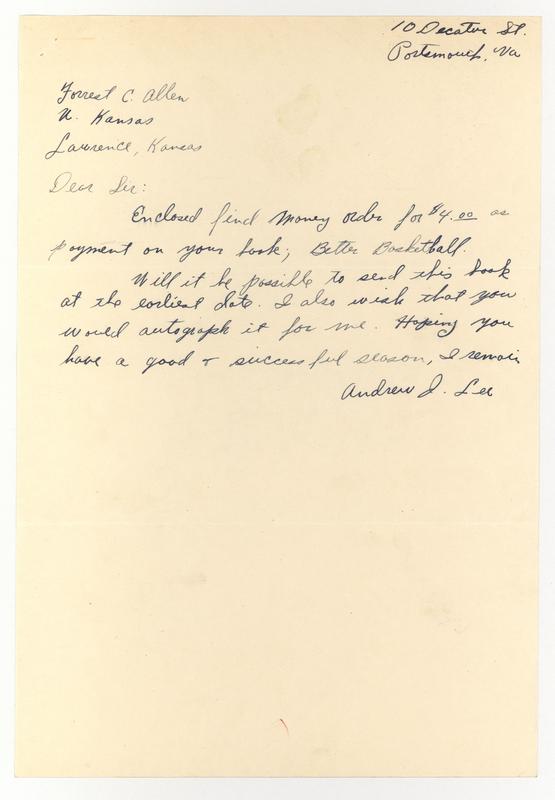 10 Decatur St.
Portsmouth, Va
Forrest C. Allen
U. Kansas
Lawrence, Kansas
Dear Sir:
Enclosed find money order for $4.00 as
payment on your book; Better Basketball.
Will it be possible to send this book
at the earliest date. I also wish that you
would autograph it for me. Hoping you
have a good & successful season, I remain
Andrew J. Lee